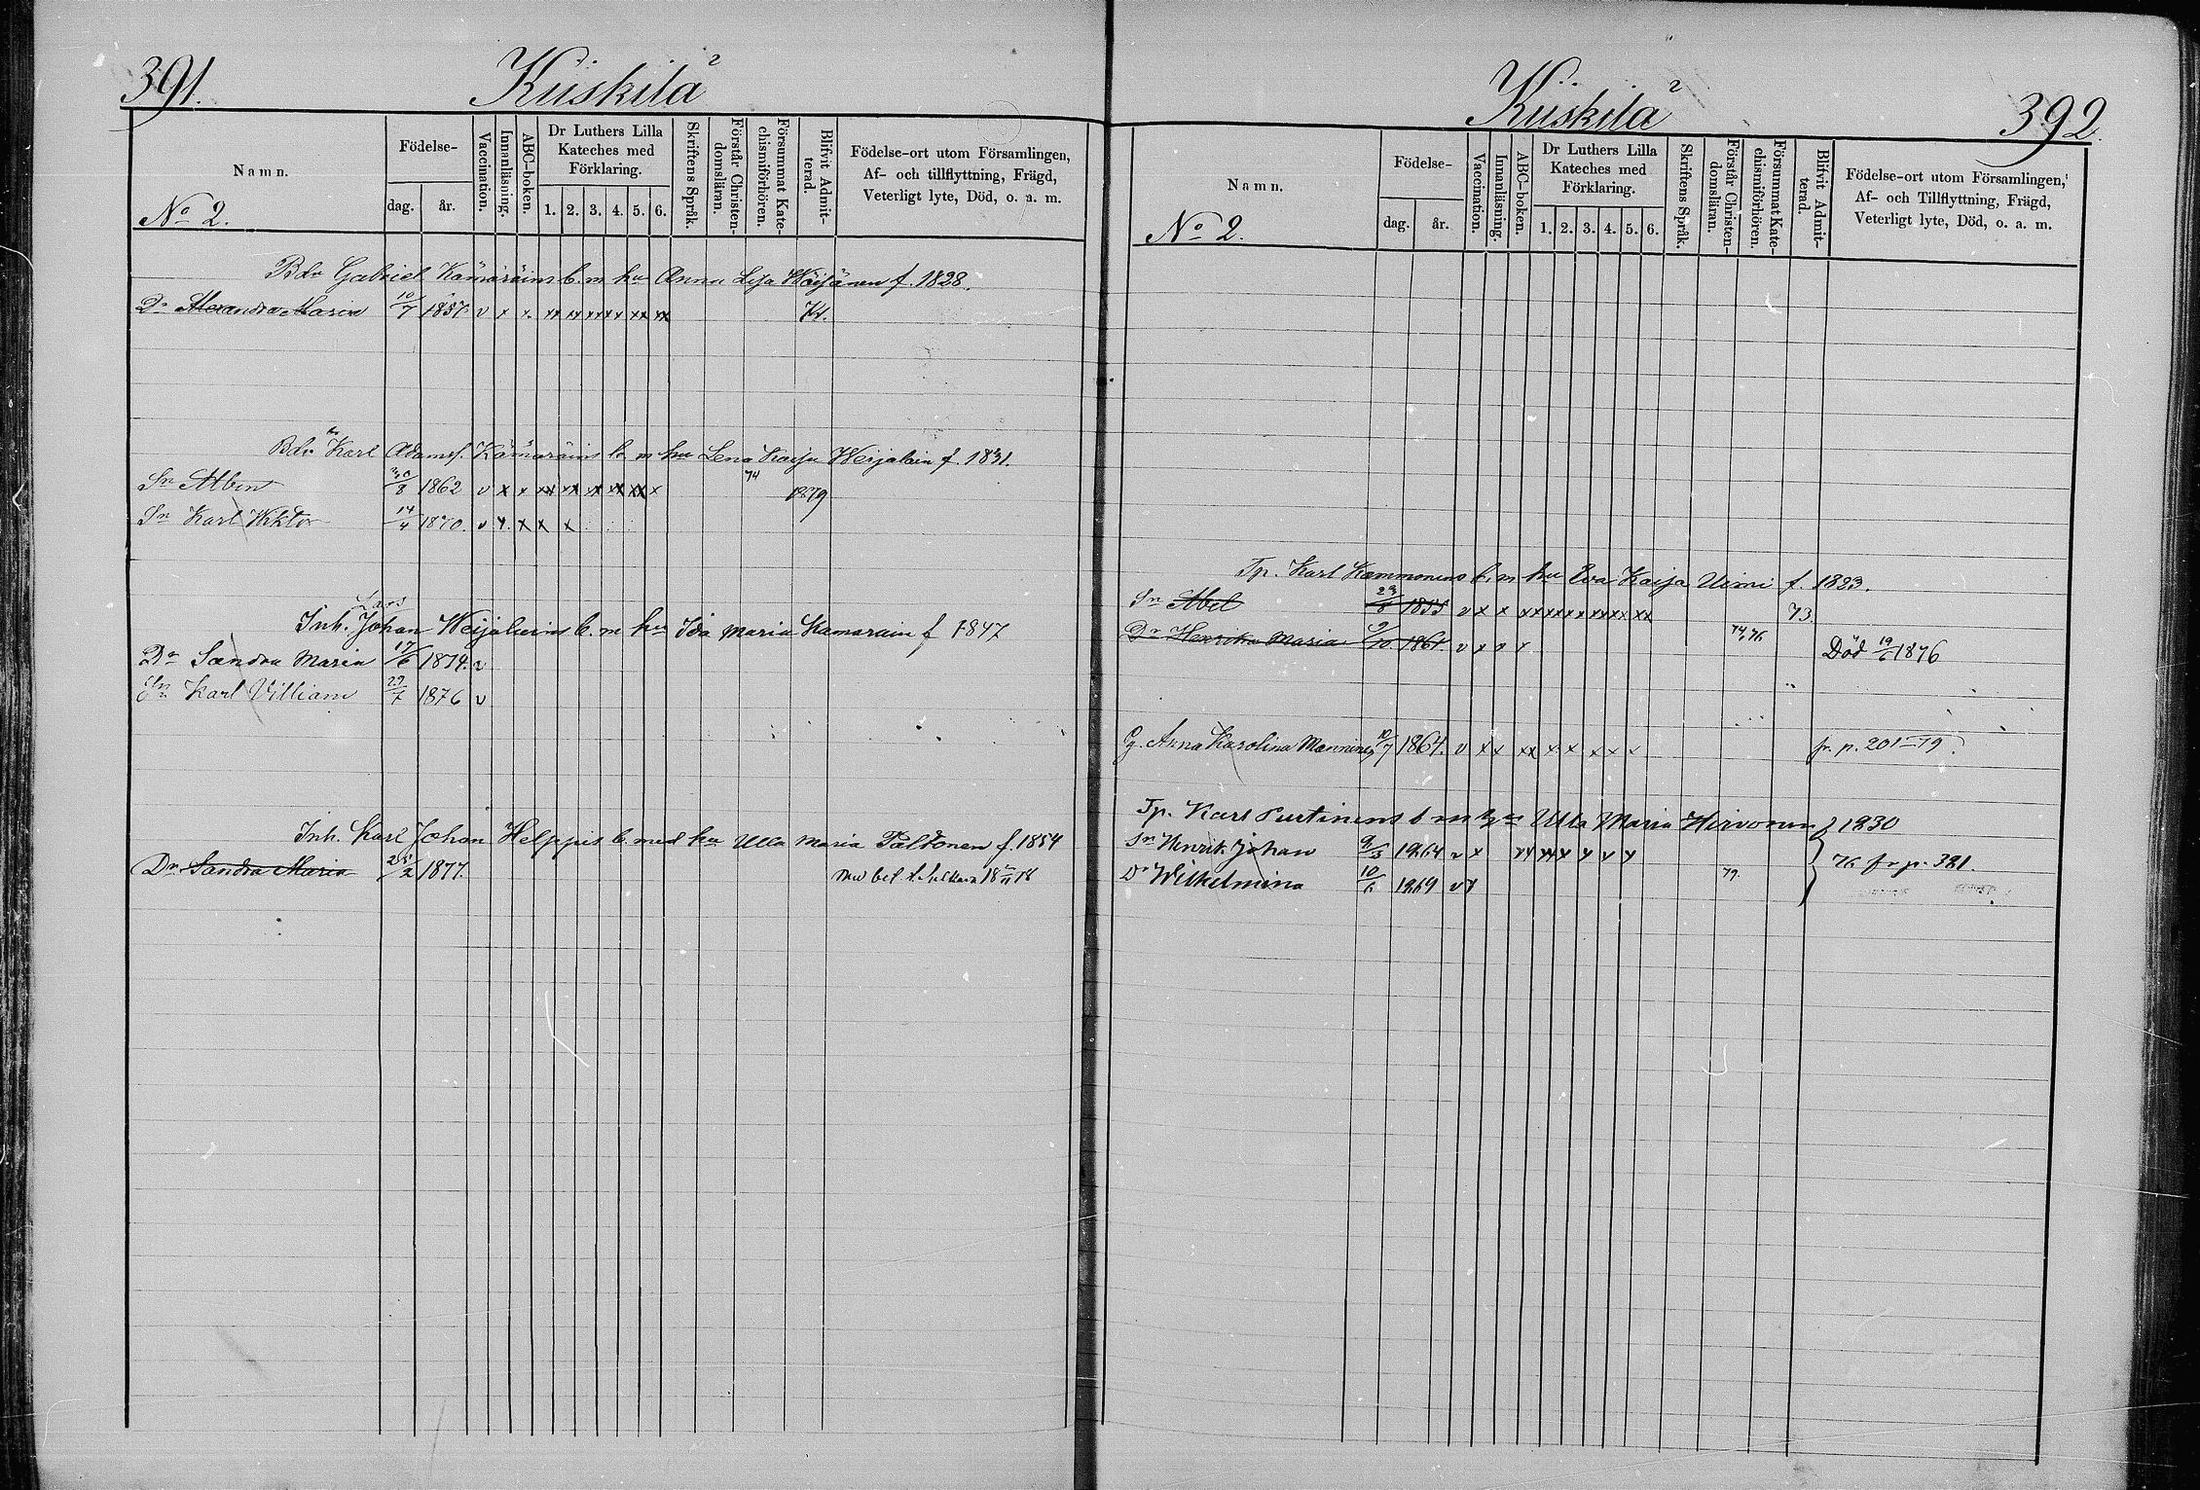 391.
Kiiskilä
Namn.
Födelse-
dag. år.
Vaccination.
Innanläsning.
ABC-boken.
Dr Luthers Lilla
Kateches med
Förklaring.
1. 2. 3. 4. 5. 6.
Skriftens Språk.
Förstår Christen-
domsläran.
Försummat Kate-
chismiförhören.
Blifvit Admit-
terad.
Födelse-ort utom Församlingen,
Af- och tillflyttning, Frägd,
Veterligt lyte, Död, o. a. m.
No 2.
Bdr Gabriel Kämäräins b. m hu Anna Lisa f. 1828.
Dr Alexandra Maria 10/7 1857 v x x xx xx xx xx xx xx 74.
Bdr Karl Adamsf. Kämäräins b m hu Lena Kaisa f. 1831.
Sn Albin 30/8 1862 v x x xx xx xx xx xx x 74 1879
Sn Karl Viktor 14/4 1870. v x x x x
Lars
Inh. Johan b. m hu Ida Maria Kämäräin f 1847
Dr Sandra Maria 17/6 1874. v
Sn Karl Villiam 29/7 1876 v
Inh. Karl Johan Helppis b. med hu Ulla Maria Paltonen f. 1854
Dr Sandra Maria 25/2 1877. med bet t.
392.
Kiiskilä
Namn.
Födelse-
dag. år.
Vaccination.
Innanläsning.
ABC-boken.
Dr Luthers Lilla
Kateches med
Förklaring.
1. 2. 3. 4. 5. 6.
Skriftens Språk.
Förstår Christen-
domsläran.
Försummat Kate-
chismiförhören.
Blifvit Admit-
terad.
Födelse-ort utom Församlingen,
Af- och Tillflyttning, Frägd,
Veterligt lyte, Död, o. a. m.
No 2.
Tp. Karl Kammonens b. m hu Eva Kaisa Uimi f. 1823.
Sn Abel 23/8 1855 v x x xx xx xx xx xx xx 73
Dr Henrika Maria 9/10 1861. v x o x 74,76 Död 19/6 1876
Pg. Anna Karolina Manninen 10/7 1864. v x x xx x x x x x fr. p. 201 19.
Tp. Karl Purtinens b m hu Ulla Maria Hirvonen f 1830
Sn Henrik Johan 9/3 1864 v x xx xx x x x x 76 fr p. 381.
Dr Wilhelmina 10/6 1869 v x 79.